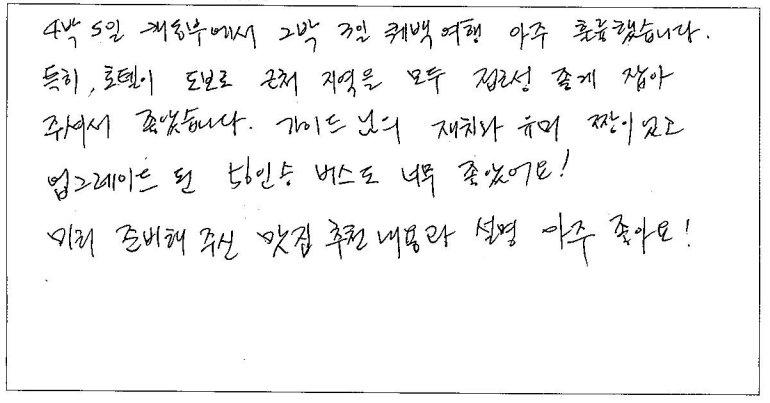 4박 5일 캐동부에서 2박 3일 퀘백 여행 아주 훌륭했습니다.
특히, 호텔이 도보로 근처 지역을 모두 접근성 좋게 잡아
주셔서 좋았습니다. 가이드 님의 재치와 유머 짱이었고
업그레이드 된 56인승 버스도 너무 좋았어요!
미리 준비해 주신 맛집 추천 내용과 설명 아주 좋아요!